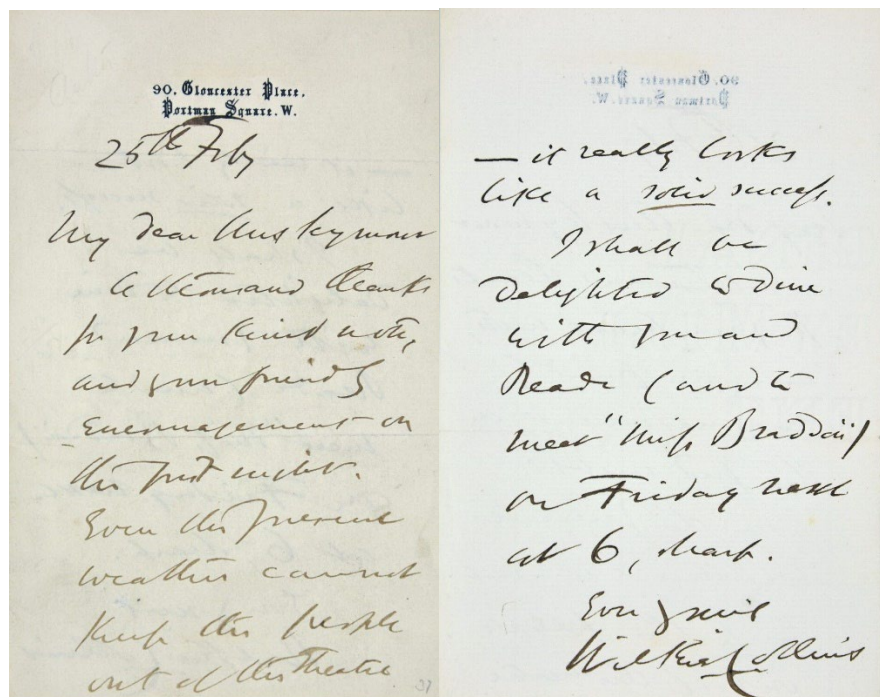 90. Gloucester Place,
Portman Square. W.
25th Feby
My dear Miss Seymour
A thousand thanks
for your kind note,
and your friendly
encouragement on
the first night.
Even the present
weather cannot
keep the people
out of the Theatre
— it really looks
like a solid success.
I shall be
delighted to dine
with you and
Reade (and to
meet "Miss Braddon")
on Friday next
at 6, sharp.
Ever yours
Wilkie Collins